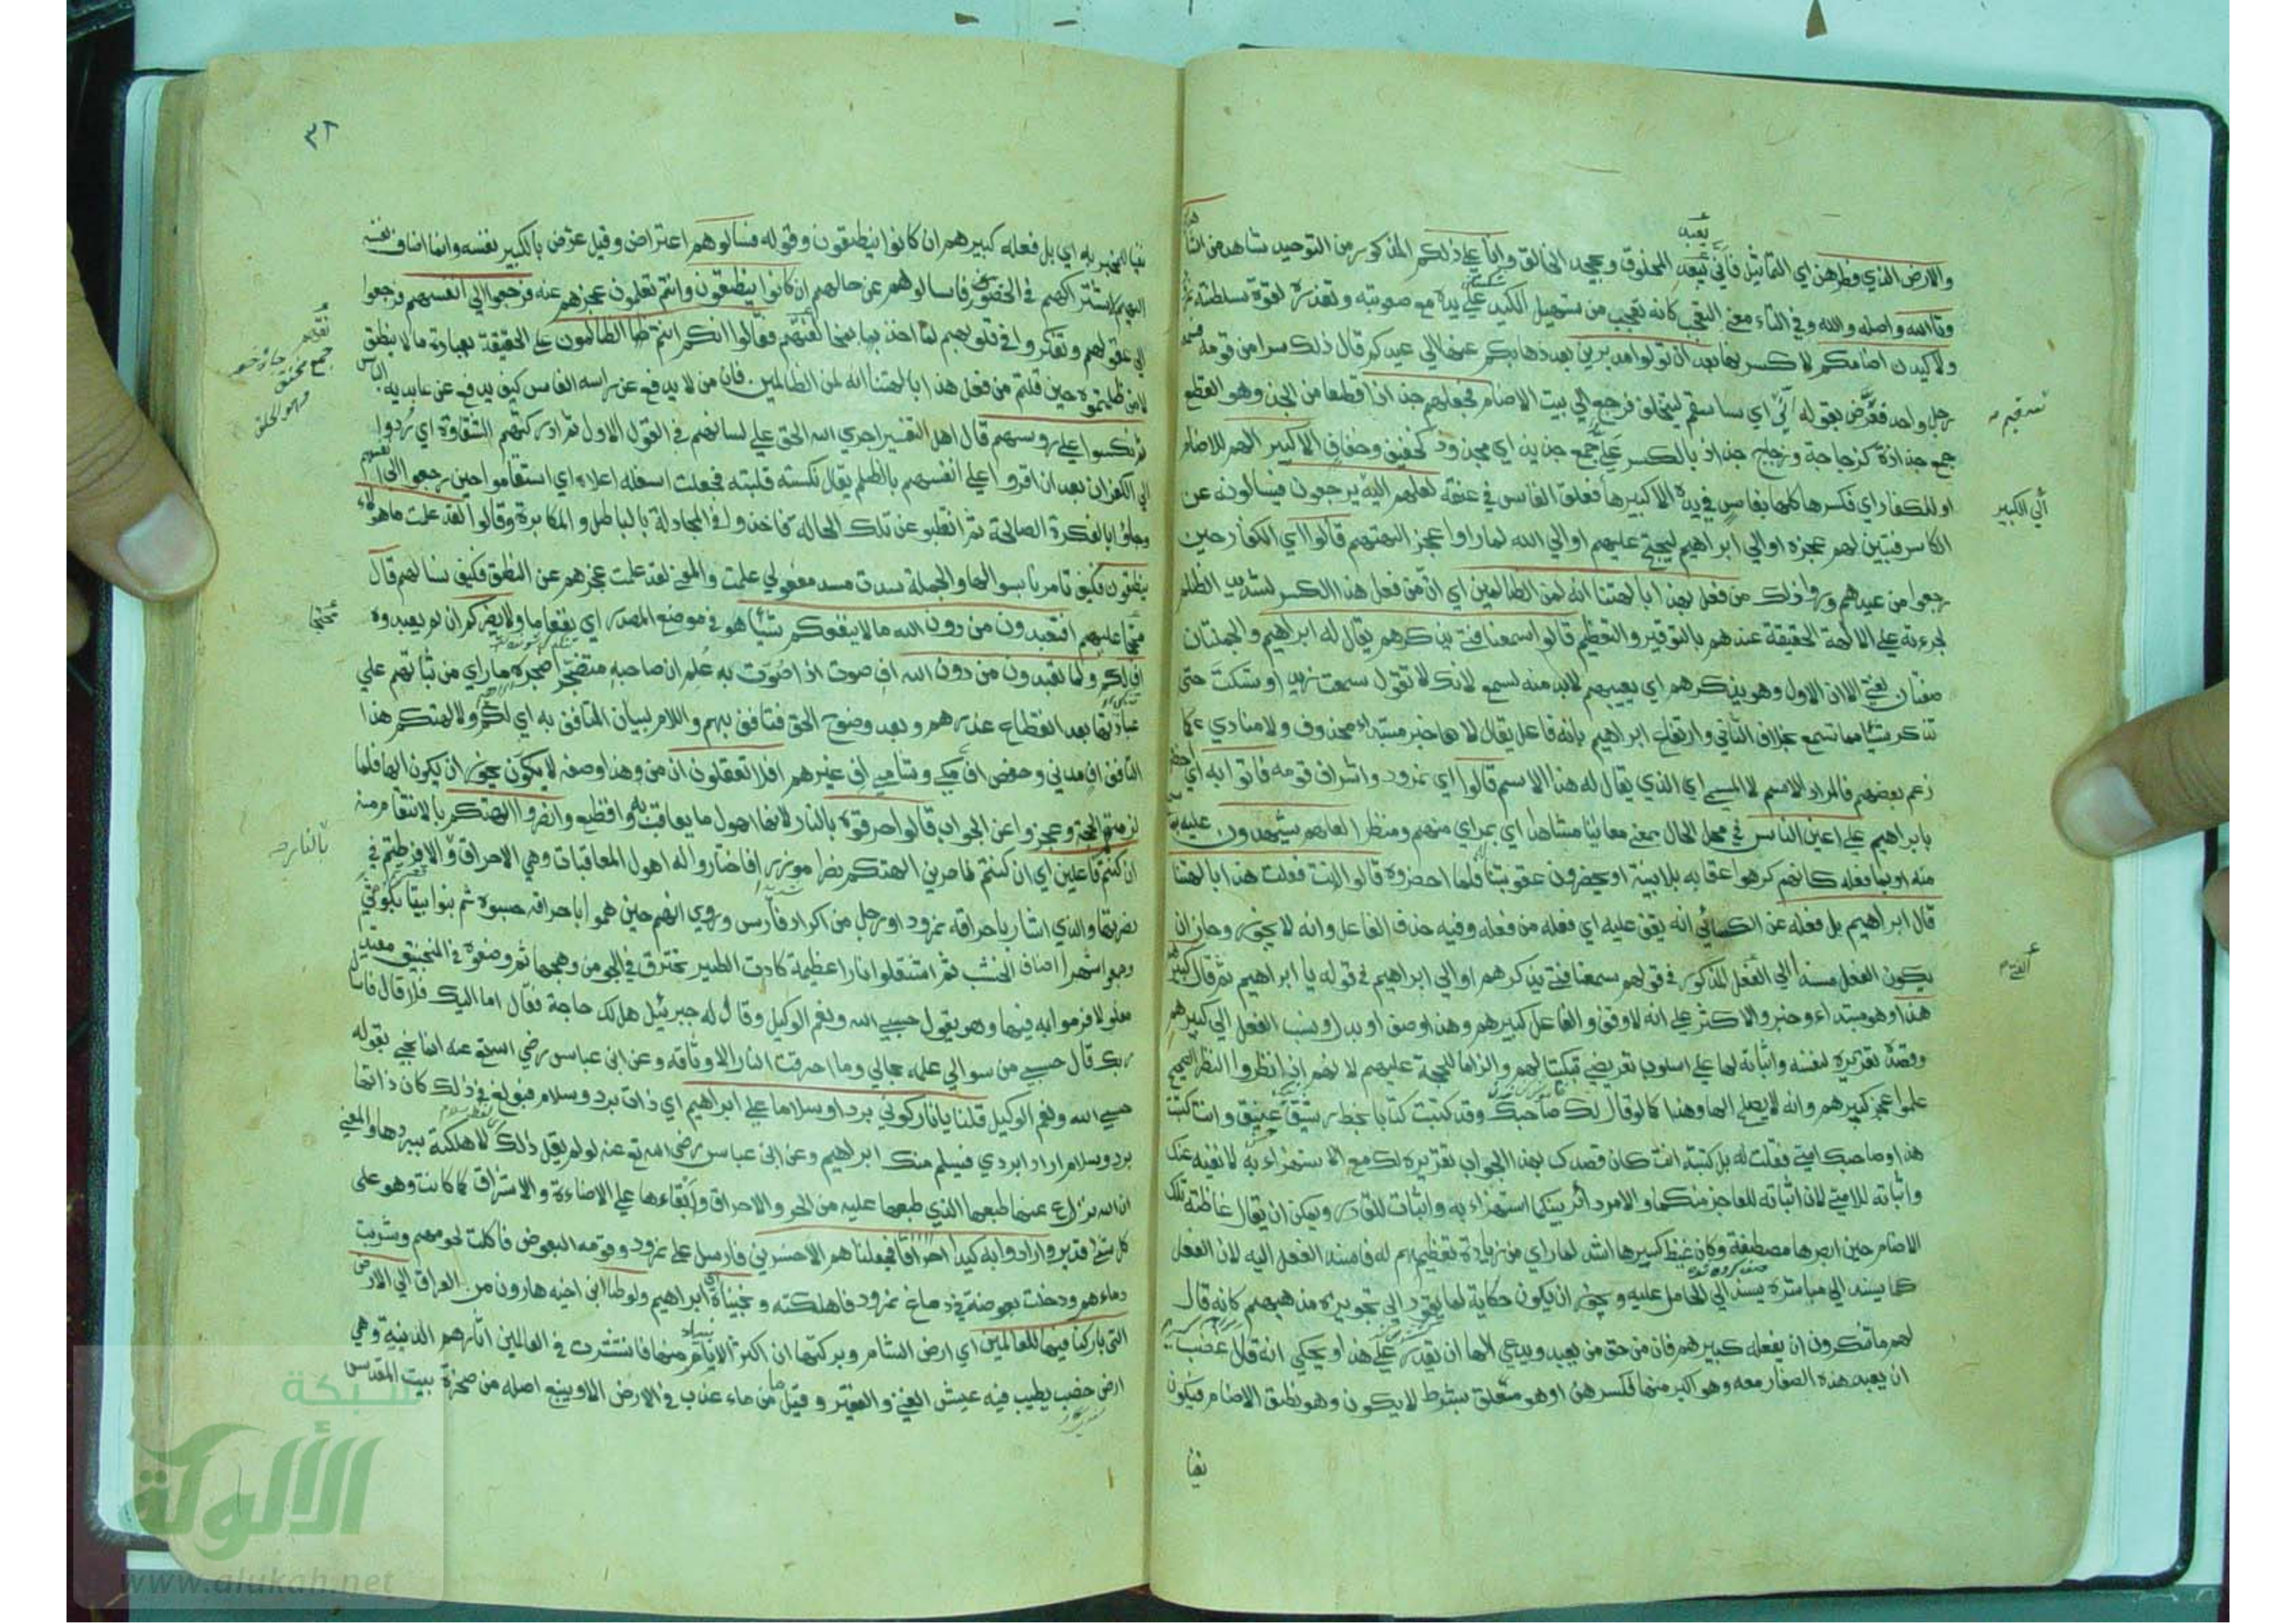 والارض الذي فطرهن اي التماثيل فاني يعبد المخلوق وعجيد الخالق وانا علي ذلكم المذكور من التوحيد شاهد من الشا
وتا الله واصله والله وفي التاء معني التعجب كانه تعجب من تسهيل الكيد علي يده مع صعوبته وتعذره لقوة سلطنة
ولاكيدن اصنامكم لاكسرنها بعد ان تولوا مدبرين بعد ذهابكم عنها الي عيدكم قال ذلك سرا من قومه
رجل واحد فعرض بقوله اني اي ساسقم ليتخلف فرجع الي بيت الاصنام فجعلهم جذاذا قطعا من الجذ وهو القطع
جمع جذاذة كزجاجة وزجاج جذاذ بالكسر علي جمع جذيذ اي مجذوذ كخفيف وخفاف الا كبيرا لهم للاصنام
او للكفار اي فكسرها كلها بفاس في يده الا كبيرها فعلق الفاس في عنقه لعلهم اليه يرجعون فيسالونه عن
الكاسر فيتبين لهم عجزه او الي ابراهيم ليحتج عليهم او الي الله لما راوا عجز الهتهم قالوا اي الكفار حين
رجعوا من عيدهم وراوا ذلك من فعل هذا بالهتنا انه لمن الظالمين اي ان من فعل هذا الكسر لشديد الظلم
لجرءته علي الالهة الحقيقة عندهم بالتوقير والتعظيم قالوا سمعنا فتي يذكرهم يقال له ابراهيم والجملتان
صفتان لفتي الا ان الاول وهو يذكرهم اي يعيبهم لابد منه لسمع لانك لا تقول سمعت زيدا وتسكت حتي
تذكر شيئا مما تسمع بخلاف الثاني وارتفاع ابراهيم بانه فاعل يقال لا بها خبر مبتداء محذوف ولا منادي كما
زعم بعضهم فالمراد الاسم لا المسمي اي الذي يقال له هذا الاسم قالوا اي نمرود واشراف قومه فاتوا به اي
بابراهيم علي اعين الناس في محل الحال بمعني معاينا مشاهدا اي بمراي منهم ومنظر لعلهم يشهدون عليه بما
منه او بما فعله كانهم كرهوا عقابه بلا بينة او يحضرون عقوبتنا فلما احضروه قالوا ءانت فعلت هذا بالهتنا
قال ابراهيم بل فعله عن الكسائي انه يقف عليه اي فعله من فعله وفيه حذف الفاعل وانه لا يجوز وجاز ان
يكون الفعل مسندا الي الفتي المذكور في قولهم سمعنا فتي يذكرهم او الي ابراهيم في قوله يا ابراهيم ثم قال كبيرهم
هذا وهو مبتداء وخبر والاكثر علي انه لا وقف والفاعل كبيرهم وهذا وصف او بدل ونسب الفعل الي كبيرهم
وقصده تقريره لنفسه واثباته لها علي اسلوب تعريضي تبكيتا لهم والزاما للحجة عليهم لانهم اذا نظروا النظر الصحيح
علموا عجز كبيرهم وانه لا يصلح الها وهذا كما لو قال لك صاحبك وقد كتبت كتابا بخط رشيق انيق وانت كتبت
هذا وصاحبك امي فقلت له بل كتبته انت كان قصدك بهذا الجواب تقريره لك مع الاستهزاء به لا نفيه عنك
واثباته للامي لان اثباته للعاجز منكما والامر دائر بينكما استهزاء به واثبات للقادر ويمكن ان يقال غاظته تلك
الاصنام حين ابصرها مصطفة وكان غيظ كبيرها اشد لما راي من زيادة تعظيمهم له فاسند الفعل اليه لان الفعل
كما يسند الي مباشره يسند الي الحامل عليه ويجوز ان يكون حكاية لما يقود الي تجويزه مذهبهم كانه قال
لهم ما تنكرون ان يفعله كبيرهم فان من حق من يعبد ويدعي الها ان يقدر علي هذا ويحكي انه قال غضب
ان يعبد هذه الصغار معه وهو اكبر منها فكسرهن او هو متعلق بشرط لا يكون وهو نطق الاصنام فيكون
نفيا
اني الكبير
٣٢
نفيا للمخبر به اي بل فعله كبيرهم ان كانوا ينطقون وقوله فسالوهم اعتراض وقيل عرض بالكبير نفسه وانما اضاف نفسه
اليهم لاشتراكهم في الحضور فاسالوهم عن حالهم ان كانوا ينطقون وانتم تعلمون عجزهم عنه فرجعوا الي انفسهم فرجعوا
الي عقولهم وتفكروا في قلوبهم لما اخذ بمخانقهم فقالوا انكم انتم الظالمون علي الحقيقة بعبادة ما لا ينطق
لا من ظلمتموه حين قلتم من فعل هذا بالهتنا انه لمن الظالمين فان من لا يدفع عن راسه الفاس كيف يدفع عن عابديه الباس
ثم نكسوا علي رؤسهم قال اهل التفسير اجري الله الحق علي لسانهم في القول الاول ثم ادركتهم الشقاوة اي ردوا
الي الكفر ان بعد ان اقروا علي انفسهم بالظلم يقال نكسته قلبته فجعلت اسفله اعلاه اي استقاموا حين رجعوا الي انفسهم
وجاؤا بالفكرة الصالحة ثم انقلبوا عن تلك الحالة فاخذوا في المجادلة بالباطل والمكابرة وقالوا لقد علمت ما هؤلاء
ينطقون فكيف تامرنا بسوالها والجملة سدت مسد مفعولي علمت والمعني لقد علمت عجزهم عن النطق فكيف نسالهم قال
محتجا عليهم افتعبدون من دون الله ما لا ينفعكم شيئا هو في موضع المصدر اي نفعا ما ولا يضركم ان لم يعبدوه
اف لكم ولما تعبدون من دون الله اف صوت اذا صوت به علم ان صاحبه متضجر اضجره ما راي من ثباتهم علي
عبادتها بعد انقطاع عذرهم وبعد وضوح الحق فتافف بهم واللام لبيان المتافف به اي لكم ولالهتكم هذا
التافف اف مدني وحفص اف مكي وشامي اف غيرهم افلا تعقلون ان من هذا وصفه لا يجوز ان يكون الها فلما
لزمتهم الحجة وعجزوا عن الجواب قالوا حرقوه بالنار لانها اهول ما يعاقب به وافظع وانصروا الهتكم بالانتقام منه
ان كنتم فاعلين اي ان كنتم ناصرين الهتكم نصرا موزرا فاختاروا له اهول المعاقبات وهي الاحراق والا فرطتم في
نصرتها والذي اشار باحراقه نمرود او رجل من اكراد فارس وروي انهم حين هموا باحراقه حبسوه ثم بنوا بيتا بكوثي
وجمعوا شهرا اصناف الخشب ثم اشتعلوا نارا عظيمة كادت الطير تحترق في الجو من وهجها ثم وضعوه في المنجنيق مقيدا
مغلولا فرموا به فيها وهو يقول حسبي الله ونعم الوكيل وقال له جبرئيل هل لك حاجة فقال اما اليك فلا قال فاسال
ربك قال حسبي من سوالي علمه بحالي وما احرقت النار الا وثاقه وعن ابن عباس رضي الله تع عنه انما نجي بقوله
حسبي الله ونعم الوكيل قلنا يا نار كوني بردا وسلاما علي ابراهيم اي ذات برد وسلام فبولغ في ذلك كان ذاتها
برد وسلام اراد ابردي فيسلم منك ابراهيم وعن ابن عباس رضي الله تع عنه لو لم يقل ذلك لاهلكته ببردها والمعني
ان الله نزع عنها طبعها الذي طبعها عليه من الحر والاحراق وابقاءها علي الاضاءة والاشراق كما كانت وهو علي
كل شي قدير وارادوا به كيدا احراقا فجعلناهم الاخسرين فارسل علي نمرود وقومه البعوض فاكلت لحومهم وشربت
دماءهم ودخلت بعوضة في دماغ نمرود فاهلكته ونجيناه اي ابراهيم ولوطا ابن اخيه هارون من العراق الي الارض
التي باركنا فيها للعالمين اي ارض الشام وبركتها ان اكثر الانبياء منها فانتشرت في العالمين اثارهم الدينية وهي
ارض خصب يطيب فيه عيش الغني والفقير وقيل ما من ماء عذب في الارض الا وينبع اصله من صخرة بيت المقدس
جمع مخنق
وهو الحلق
محتجا
بالنار صح
شبكة
الألوكة
www.alukah.net